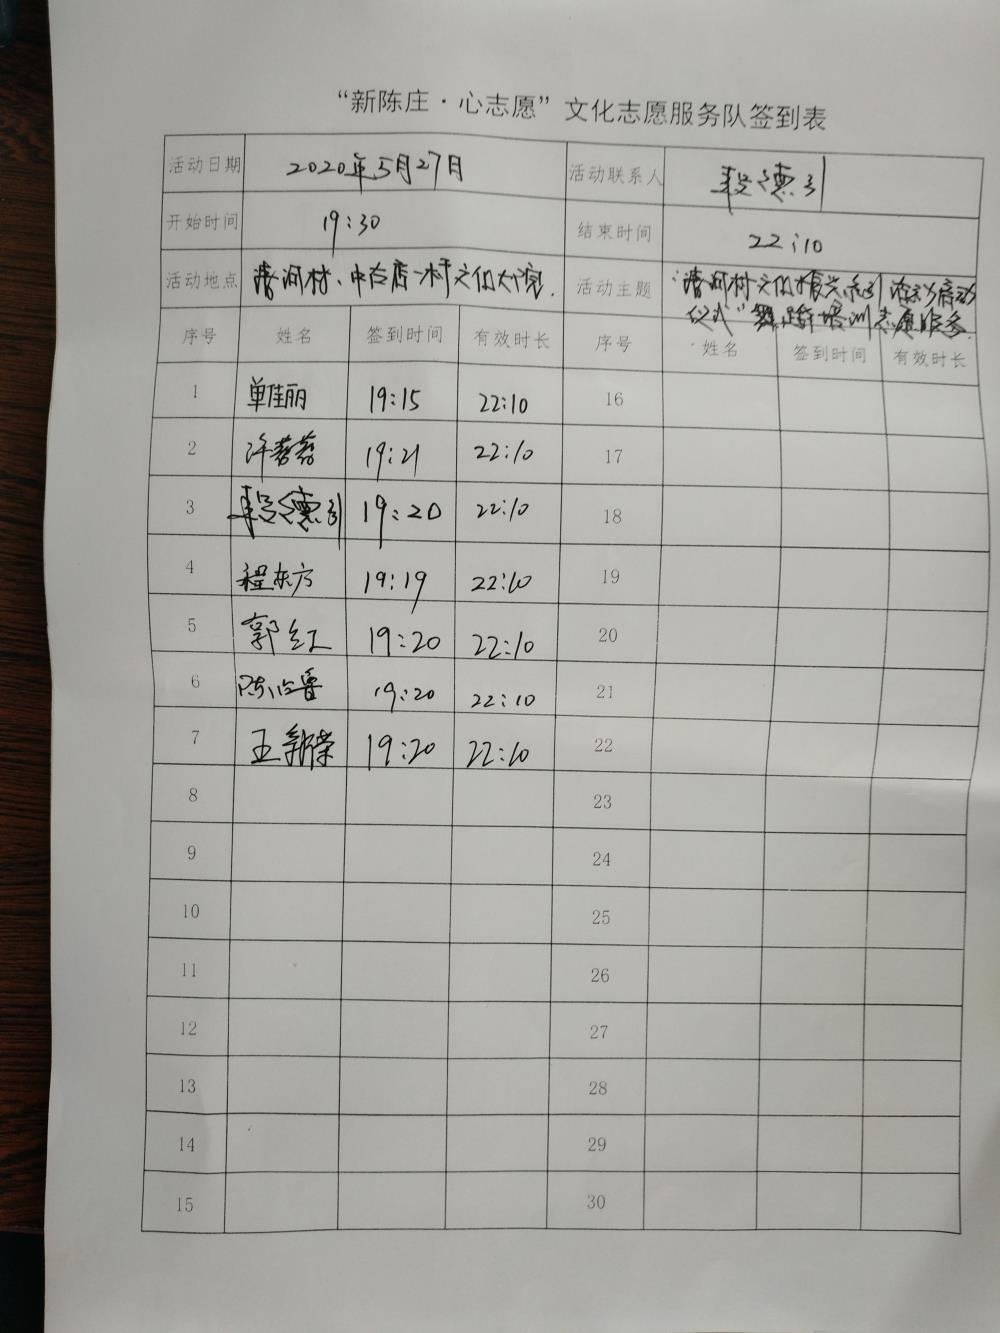 “新陈庄·心志愿”文化志愿服务队签到表
活动日期 2020年5月27日 活动联系人
开始时间 19:30 结束时间 22:10
活动地点 活动主题
序号 姓名 签到时间 有效时长 序号 姓名 签到时间 有效时长
1 单佳丽 19:15 22:10 16
2 许蓉蓉 19:21 22:10 17
3 19:20 22:10 18
4 程东方 19:19 22:10 19
5 郭红 19:20 22:10 20
6 19:20 22:10 21
7 王新荣 19:20 22:10 22
8 23
9 24
10 25
11 26
12 27
13 28
14 29
15 30